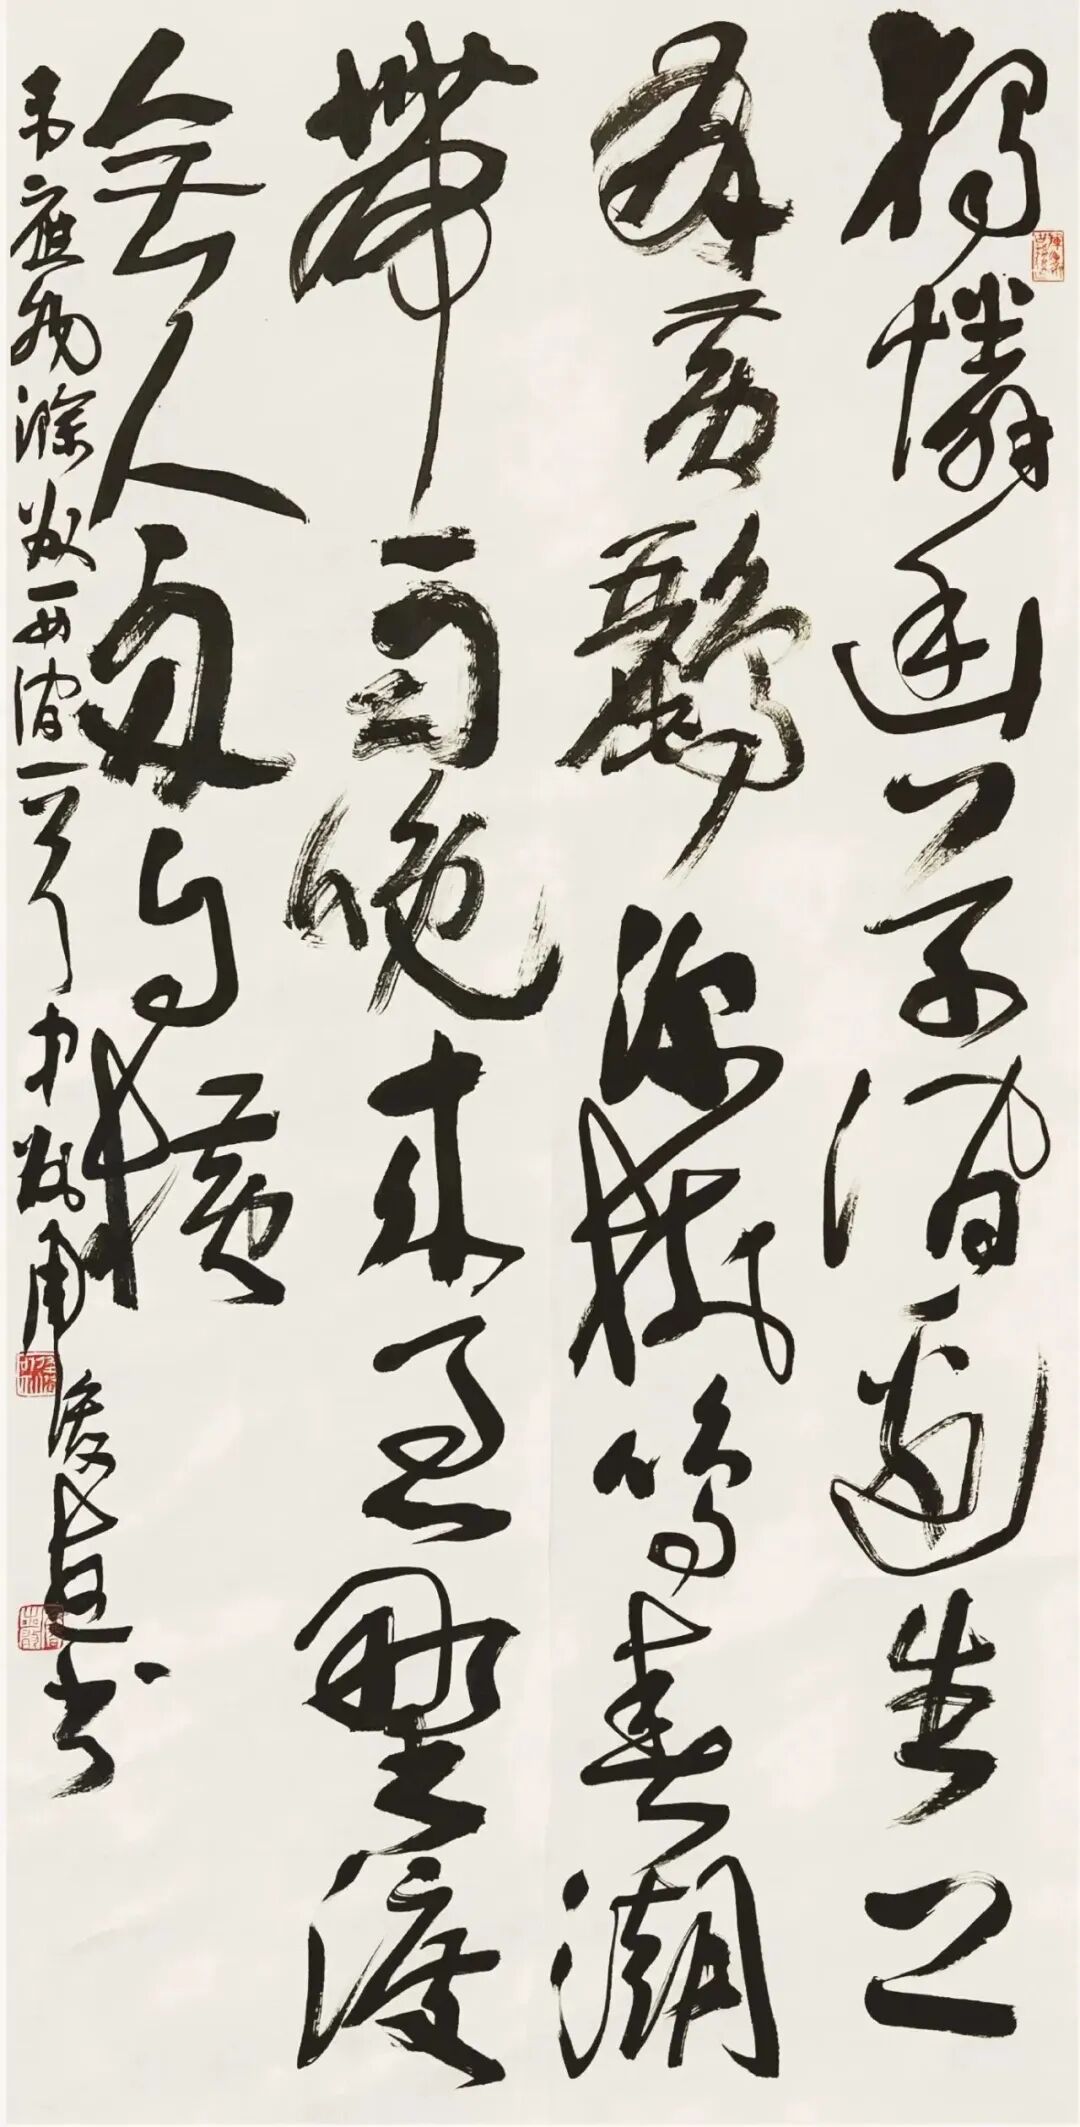 獨憐幽草澗邊生上
有黃鸝深樹鳴春潮
帶雨晚來急野渡
無人舟自橫
韋應物滁州西澗一首中州周俊杰書